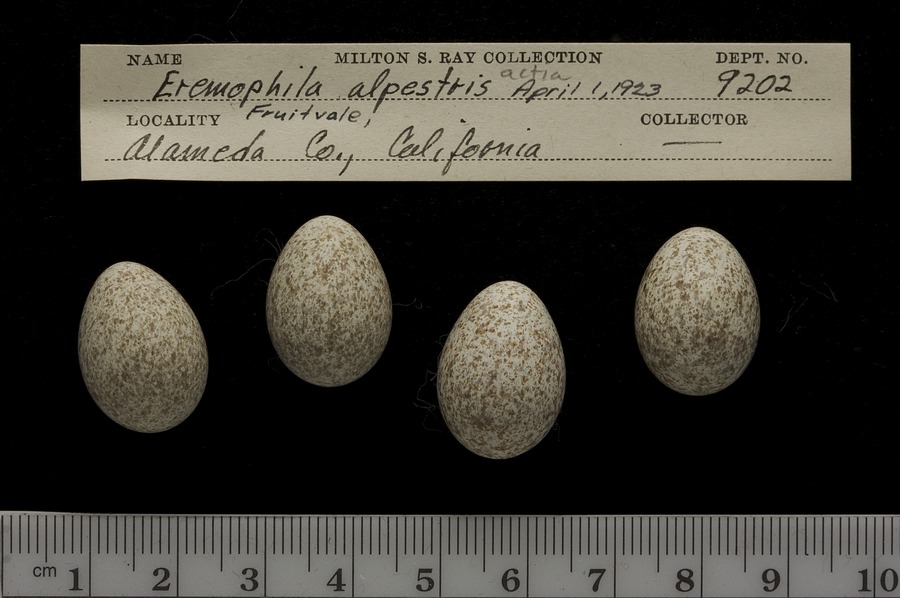 NAME MILTON S. RAY COLLECTION DEPT. NO.
Eremophila alpestris actia April 1, 1923 9202
LOCALITY Fruitvale, COLLECTOR
Alameda Co., California
cm 1 2 3 4 5 6 7 8 9 10